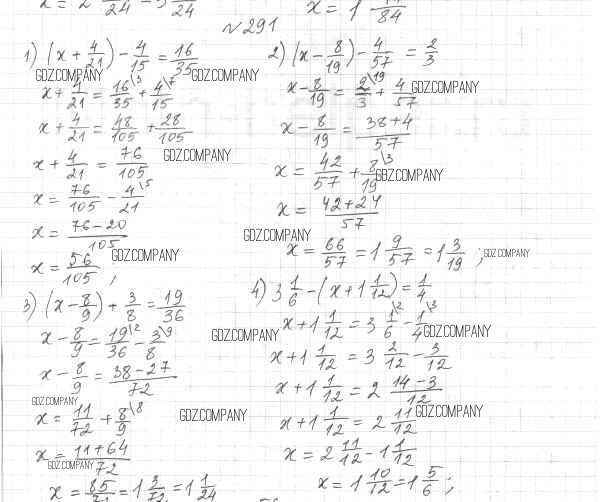 №291
1) (x + 4/21) - 4/15 = 16/35
GDZ.COMPANY GDZ.COMPANY
x + 4/21 = 16/35 \3 + 4/15 \7
x + 4/21 = 48/105 + 28/105
x + 4/21 = 76/105 GDZ.COMPANY
x = 76/105 - 4/21 \5
x = 76-20/105
x = 56/105 ; GDZ.COMPANY
2) (x - 8/19) - 4/57 = 2/3
x - 8/19 = 2/3 \19 + 4/57 GDZ.COMPANY
x - 8/19 = 38+4/57
x = 42/57 + 8/19 \3 GDZ.COMPANY
x = 42+24/57
GDZ.COMPANY
x = 66/57 = 1 9/57 = 1 3/19 ; GDZ.COMPANY
3) (x - 8/9) + 3/8 = 19/36
x - 8/9 = 19/36 \2 - 3/8 \9 GDZ.COMPANY
x - 8/9 = 38-27/72
GDZ.COMPANY
x = 11/72 + 8/9 \8 GDZ.COMPANY
x = 11+64/72
GDZ.COMPANY
x = 85/72 = 1 3/72 = 1 1/24
4) 3 1/6 - (x + 1 1/12) = 1/4
x + 1 1/12 = 3 1/6 \2 - 1/4 \3 GDZ.COMPANY
x + 1 1/12 = 3 2/12 - 3/12
x + 1 1/12 = 2 14-3/12
x + 1 1/12 = 2 11/12 GDZ.COMPANY
x = 2 11/12 - 1 1/12
x = 1 10/12 = 1 5/6 ;